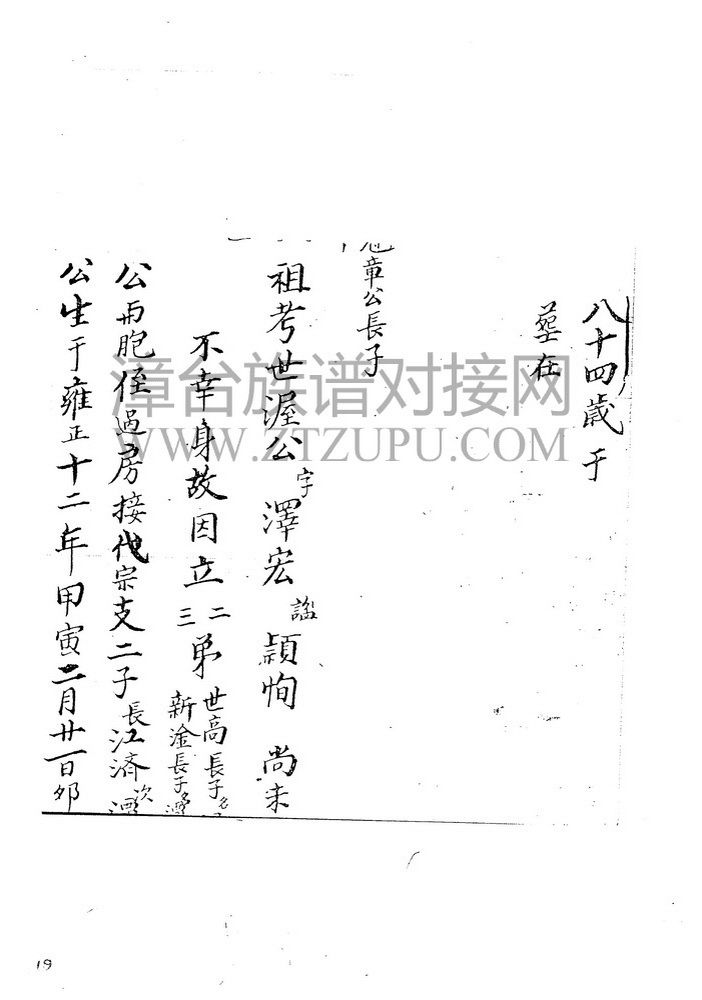 八十四歲于
塟在
章公長子
祖考世渥公字澤宏諡穎恂 尚未
不幸身故因立二三弟世高長子名新淦長子名
公與胞侄過房接代宗支二子長江濟次
公生于雍正十二年甲寅二月廿一日卯
漳台族谱对接网
WWW.ZTZUPU.COM
19